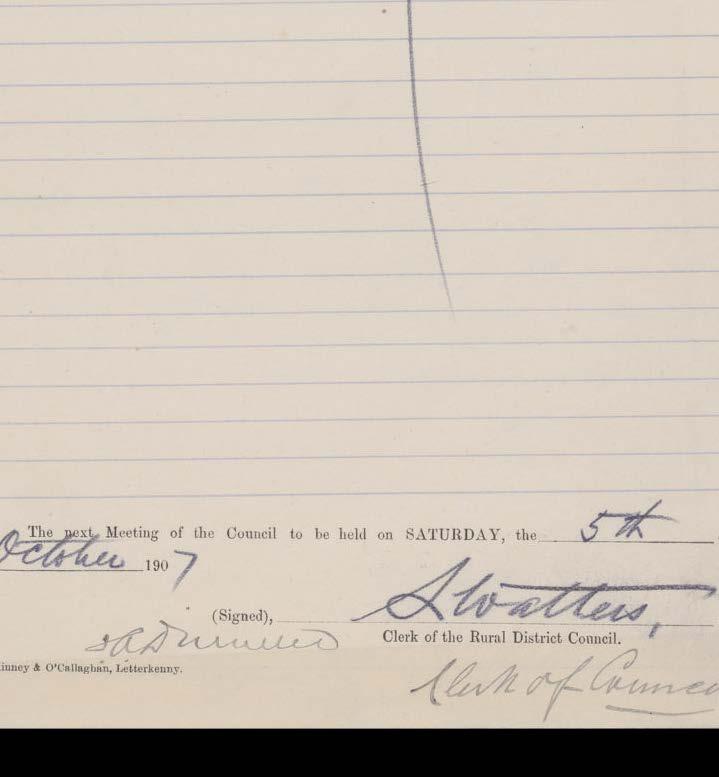 The next Meeting of the Council to be held on SATURDAY, the 5th
October 1907
(Signed), SWatters,
Clerk of the Rural District Council.
inney & O'Callaghan, Letterkenny.
Clerk of Counc